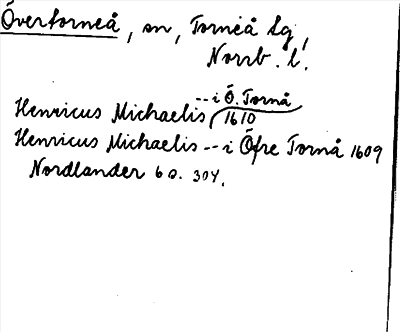 Övertorneå, sn, Torneå lg,
Norrb. l.
Henricus Michaelis -- i Ö. Tornå 1610
Henricus Michaelis -- i Öfre Tornå 1609
Nordlander 6 a. 304.